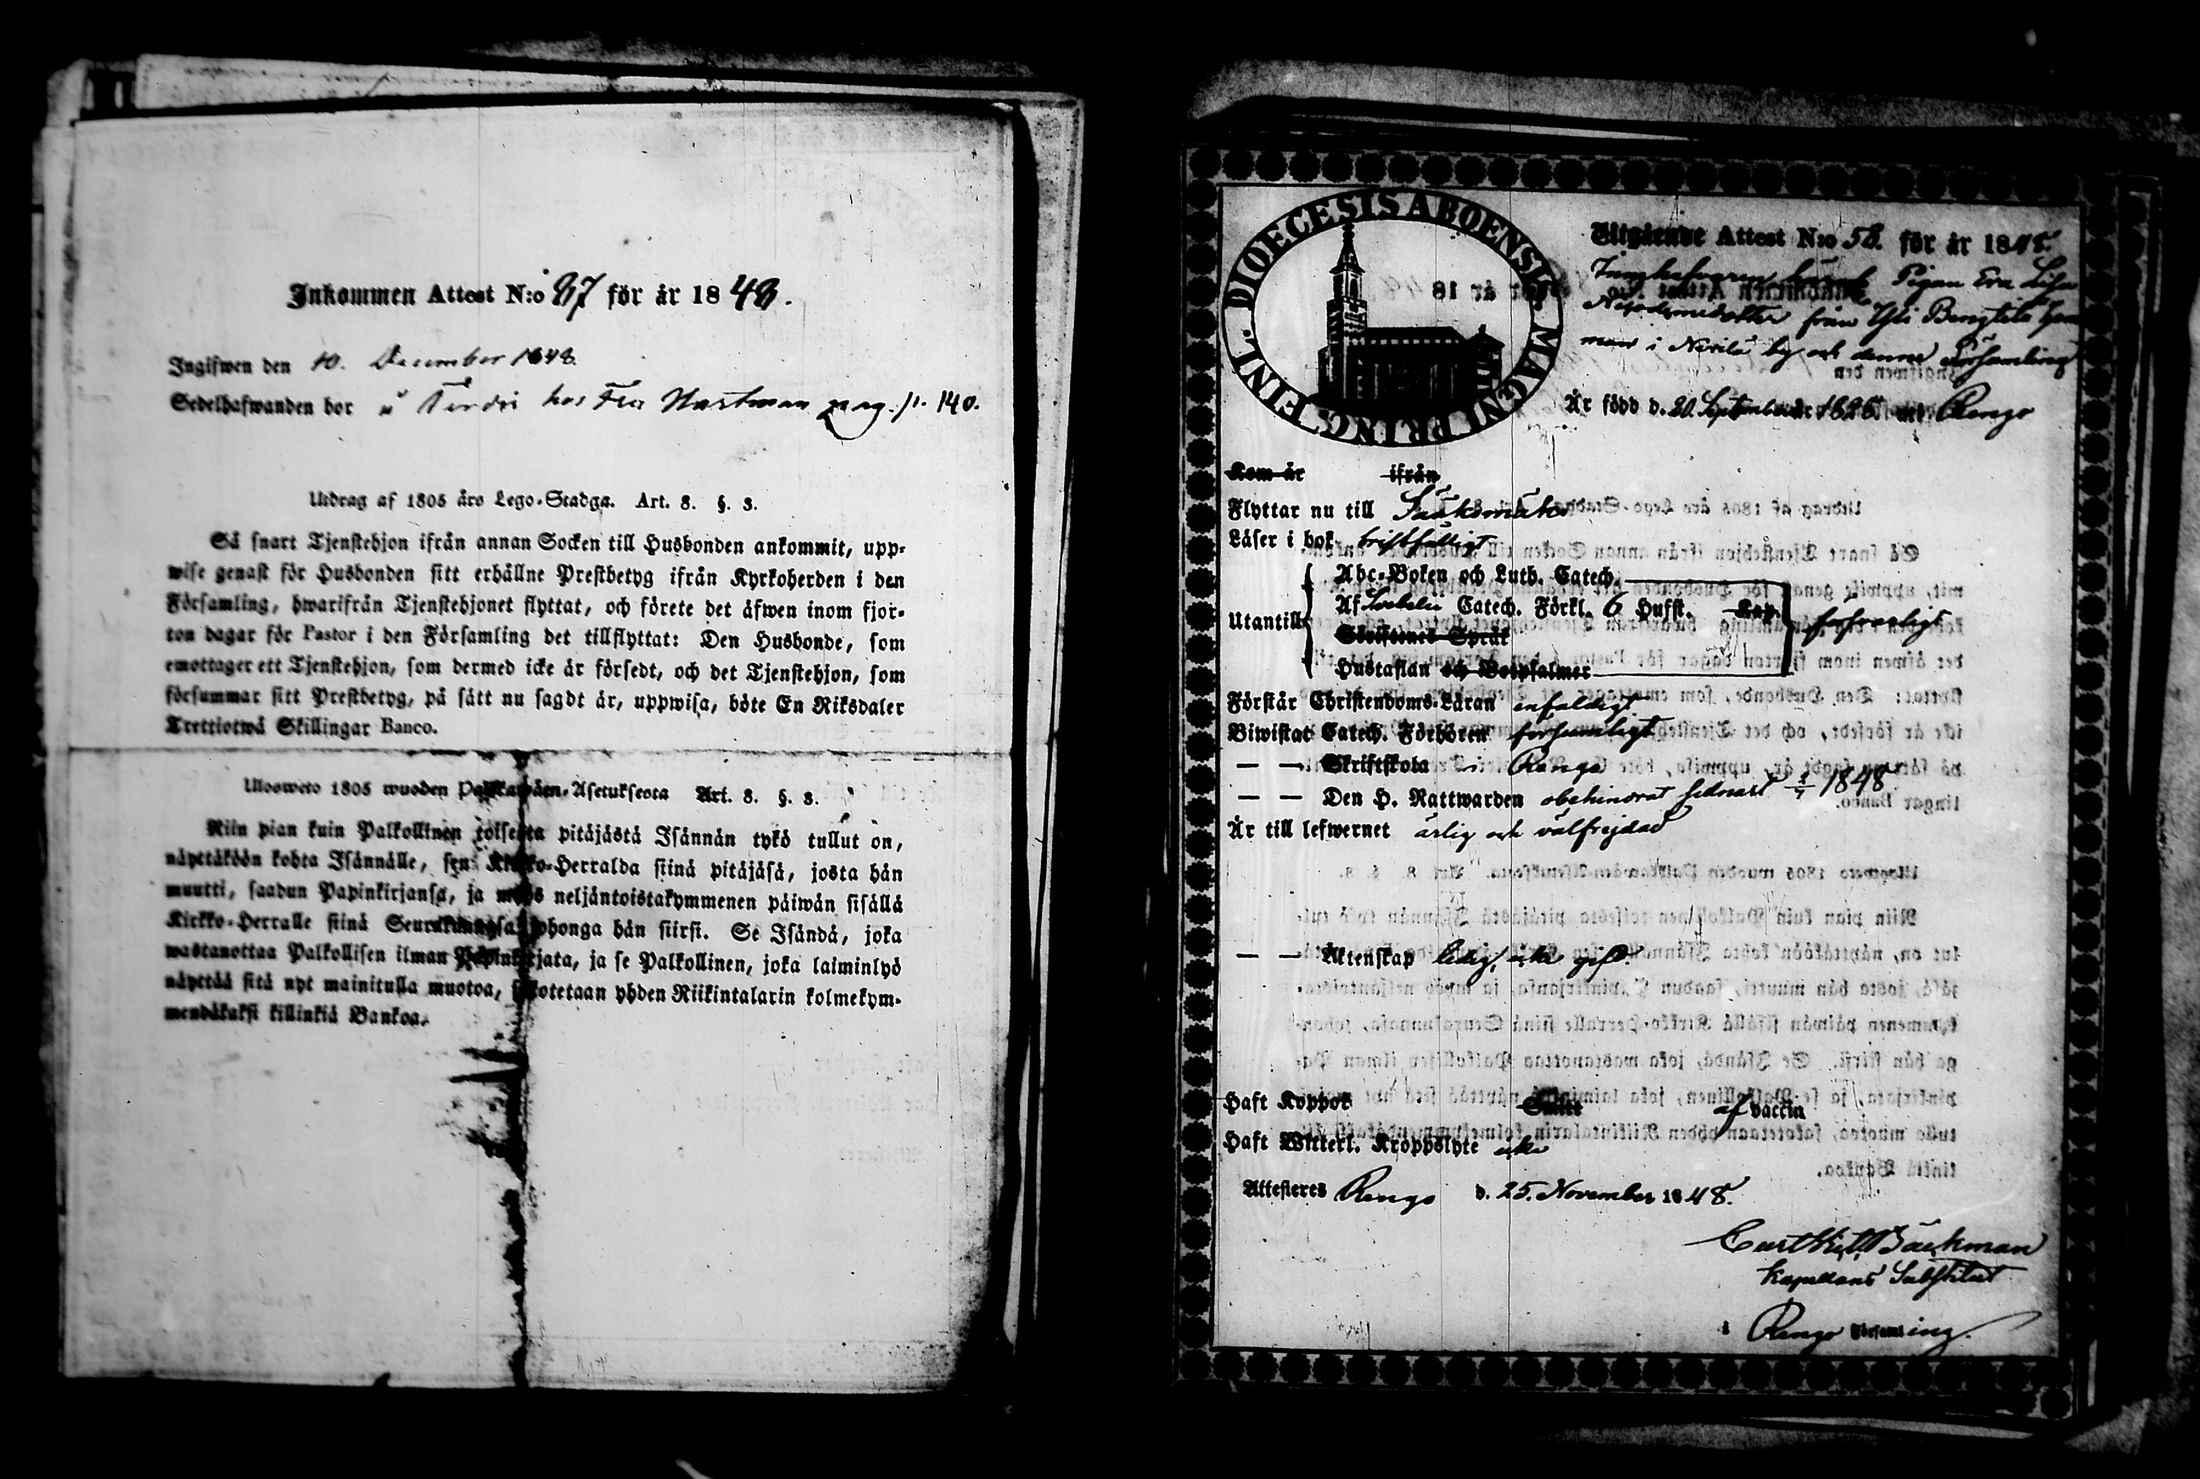 Inkommen Attest N:o 87 för år 1848.
Ingifwen den 10. December 1848.
Sedelhafwanden bor å hos Fru Hartman pag. 140.
Utdrag af 1805 års Lego-Stadga. Art. 8. §. 3.
Så snart Tjenstehjon ifrån annan Socken till Husbonden ankommit, upp-
wise genast för Husbonden sitt erhållne Prestbetyg ifrån Kyrkoherden i den
Församling, hwarifrån Tjenstehjonet flyttat, och förete det äfwen inom fjor-
ton dagar för Pastor i den Församling det tillflyttat: Den Husbonde, som
emottager ett Tjenstehjon, som dermed icke är försedt, och det Tjenstehjon, som
försummar sitt Prestbetyg, på sätt nu sagdt är, uppwisa, böte En Riksdaler
Trettiotwå Skillingar Banco.
Ulosweto 1805 wuoden Palkawäen-Asetuksesta Art. 8. §. 3.
Niin pian kuin Palkollinen toisesta pitäjästä Isännän tykö tullut on,
näyttäköön kohta Isännälle, sen Kirkko-Herralda siinä pitäjäsä, josta hän
muutti, saadun Papinkirjansa, ja myös neljäntoistakymmenen päiwän sisällä
Kirkko-Herralle siinä Seurakunnasa, johonga hän siirsi. Se Isändä, joka
wastanottaa Palkollisen ilman Papinkirjata, ja se Palkollinen, joka laiminlyö
näyttää sitä nyt mainitulla muotoa, sakotetaan yhden Riikintalarin kolmekym-
mendäkaksi killinkiä Bankoa.
DIOECESIS ABOENSIS. MAGNI PRINC. FINL.
Utgående Attest N:o 58. för år 1848.
Pigan Eva Lisa
från Yli Bengtila hem
man i by och denna Församling
Är född d. 20. September år 1826. uti Rengo
Kom år ifrån
Flyttar nu till Sääksmäki
Läser i bok
Utantill
Abc-Boken och Luth. Catech.
Af Svebelii Catech. Förkl. 6 Hufst. Kap.
Skriftenes Språk
Hustaflan och Botpsalmer
försvarligt
Förstår Christendoms-Läran enfaldigt
Biwistat Catech. Förhören försvarligt
— — Skriftskola i Rengo
— — Den H. Nattwarden obehindrat sednast 1848
Är till lefwernet ärlig och välfrejdad
— — Äktenskap ledig, icke gift.
Haft Koppor Smitt af vaccin
Haft Witterl. Kroppslyte icke
Attesteres Rengo d. 25. November 1848.
Curt Bäckman
Kapellans Substitut
i Rengo Församling.